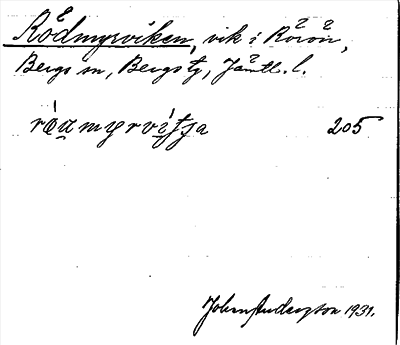 Rödmyrviken, vik i Rörön,
Bergs sn, Bergs tg, Jämtl. l.
205
John Anderzson 1931.